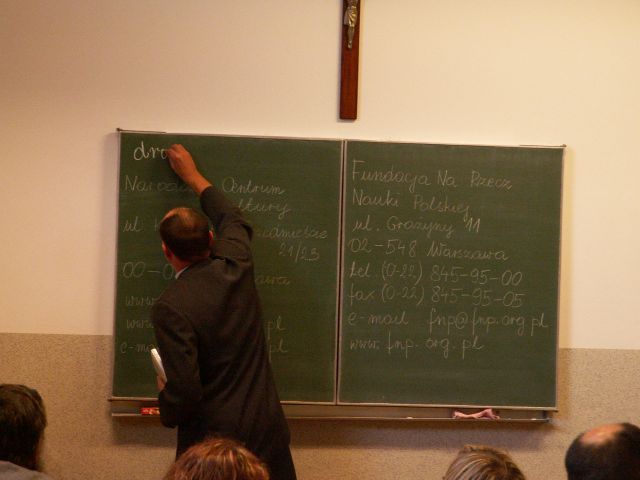 dro
Narod Centrum
ltury
ul
21/23
00-0
www.
www. pl
e-ma pl
Fundacja Na Rzecz
Nauki Polskiej
ul. Grażyny 11
02-548 Warszawa
tel (0-22) 845-95-00
fax (0-22) 845-95-05
e-mail fnp@fnp.org.pl
www.fnp.org.pl